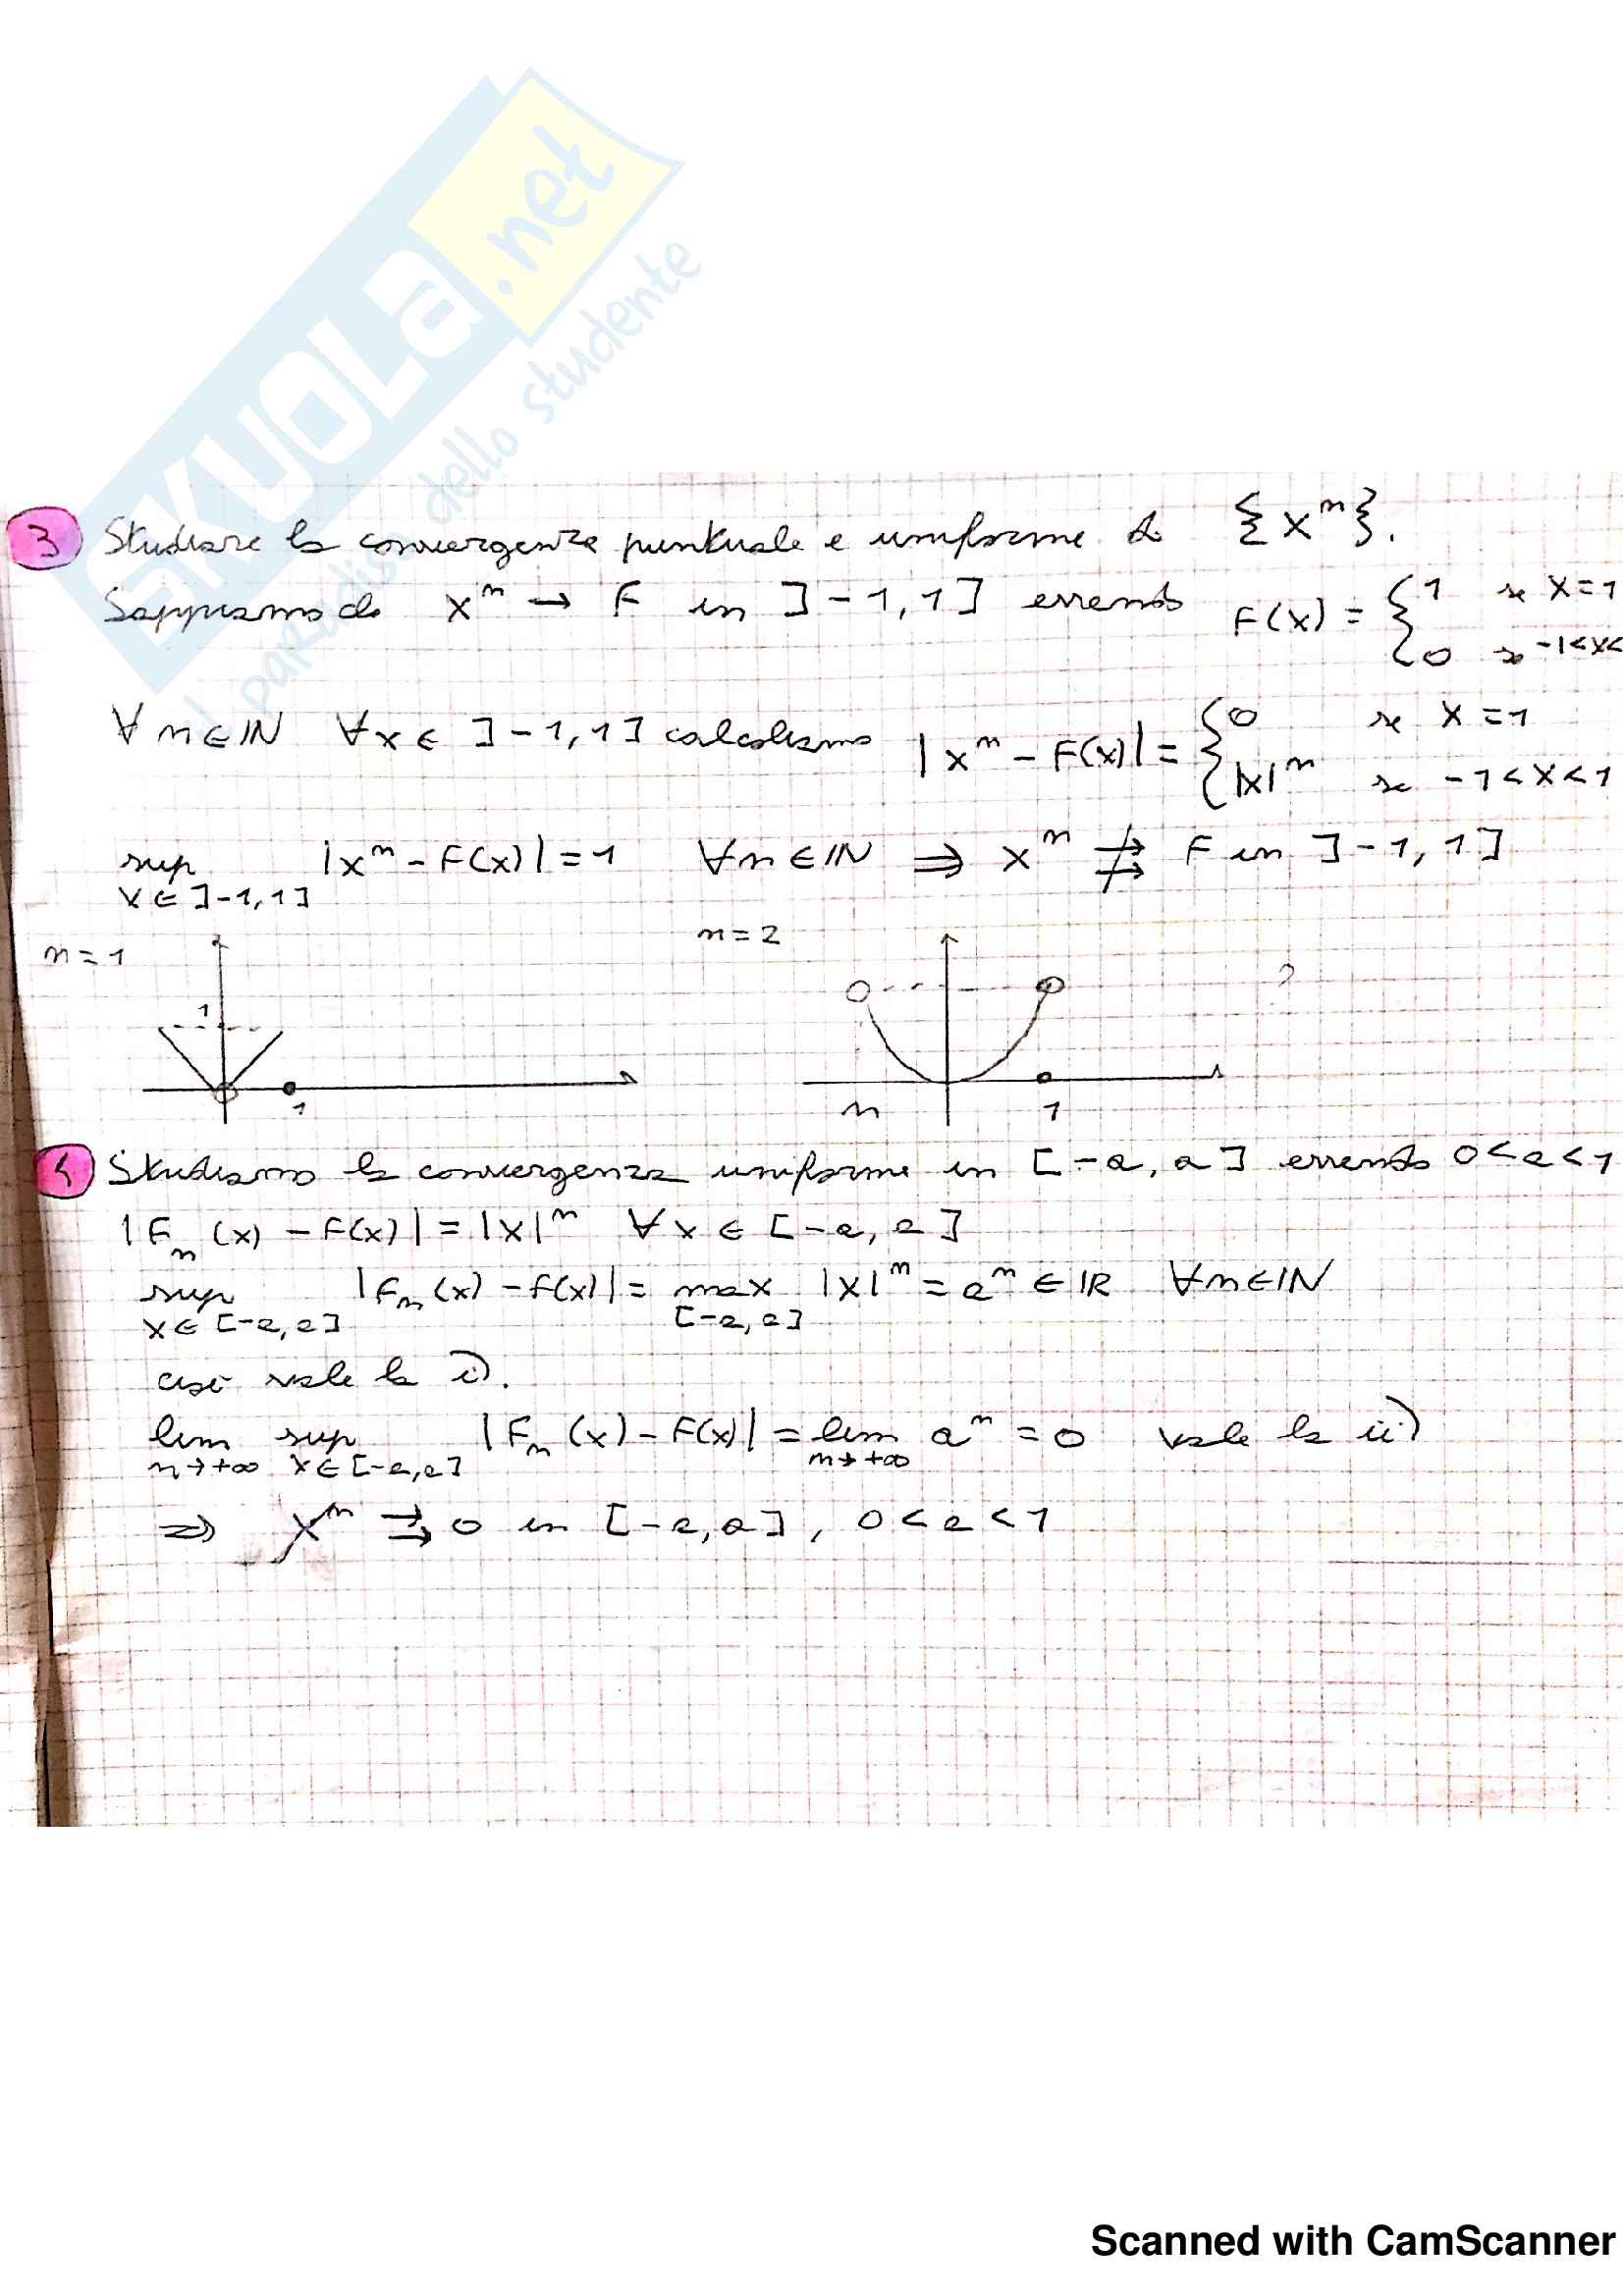 SKUOLA.net
il paradiso dello studente
3 Studiare la convergenza puntuale e uniforme di {x^n}.
Sappiamo che x^n → F in ]-1,1] essendo F(x) = { 1 se x=1
0 se -1<x<
∀n∈ℕ ∀x∈ ]-1,1] calcoliamo |x^n - F(x)| = { 0 se x=1
|x|^n se -1<x<1
sup |x^n - F(x)| = 1 ∀n∈ℕ ⇒ x^n ⇉̸ F in ]-1,1]
x∈]-1,1]
n=1 n=2
1
1 n 1
4 Studiamo la convergenza uniforme in [-a,a] essendo 0<a<1
|F_n(x) - F(x)| = |x|^n ∀x∈[-a,a]
sup |F_n(x) - F(x)| = max |x|^n = a^n ∈ℝ ∀n∈ℕ
x∈[-a,a] [-a,a]
così vale la i).
lim sup |F_n(x) - F(x)| = lim a^n = 0 vale la ii)
n→+∞ x∈[-a,a] n→+∞
⇒ x^n ⇉ 0 in [-a,a], 0<a<1
Scanned with CamScanner